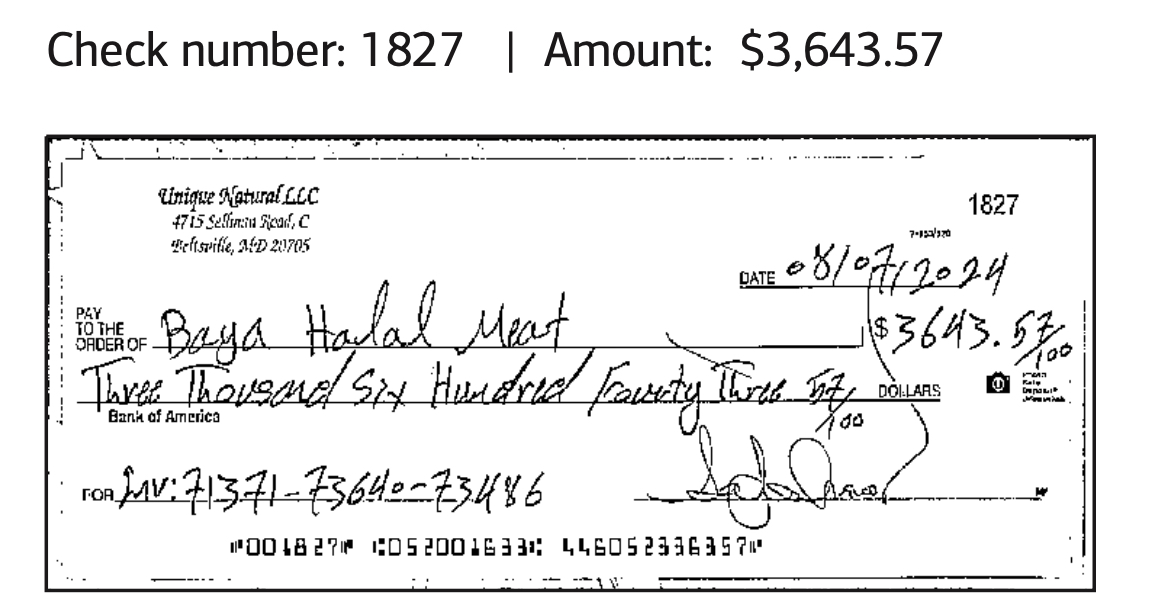 Check number: 1827 | Amount: $3,643.57
Unique Natural LLC
1827
4715 Sellman Road, C
Beltsville, MD 20705
DATE 08/07/2024
PAY
TO THE
ORDER OF Baya Halal Meat $3643.57/100
Three Thousand Six Hundred Fourty Three 57/100 DOLLARS
Bank of America
FOR Inv: 71371-73640-73486
⑈001827⑈ ⑆052001633⑆ 446052336357⑈